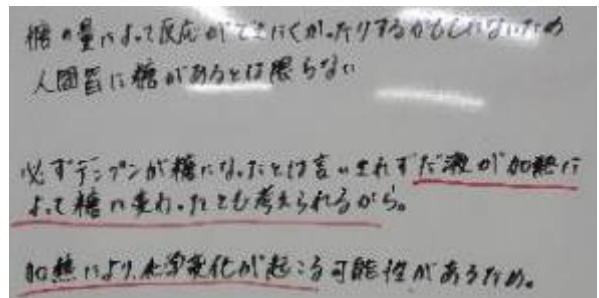 糖の量によって反応ができにくかったりするかもしれないため
人間皆に糖があるとは限らない
必ずデンプンが糖になったとは言いきれずだ液が加熱に
よって糖に変わったとも考えられるから。
加熱により、化学変化が起こる可能性があるため。